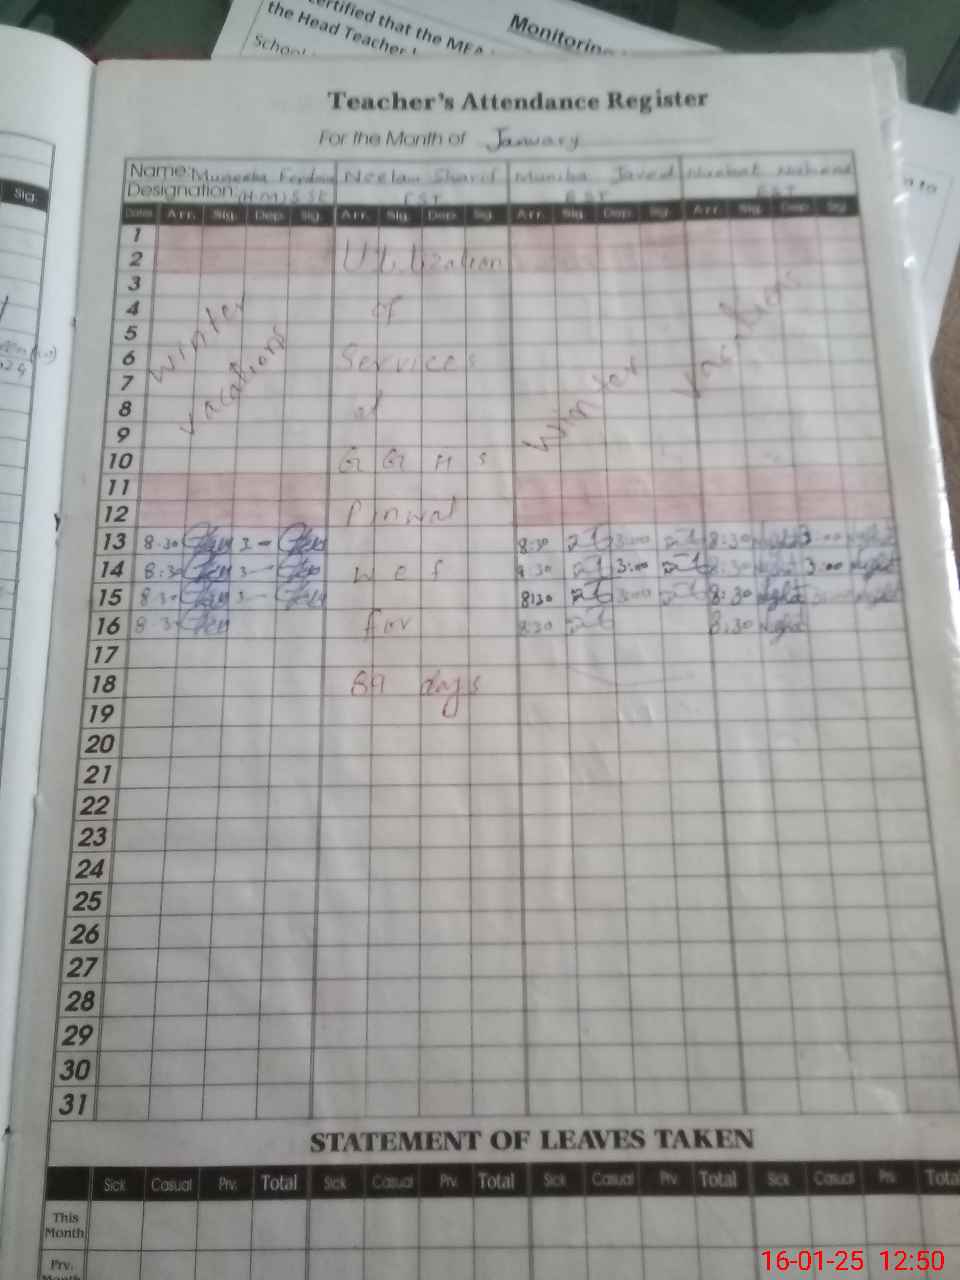 ertified that the MEA
the Head Teacher
School
Monitoring
Teacher's Attendance Register
For the Month of January
Name: Muqeeba Ferdous Neelam Sharif Muniba Javed Nusbat Naheed
Designation: (H.M) SSE EST EST EST
Sig.
Dates Arr. Sig. Dep. Sig. Arr. Sig. Dep. Sig. Arr. Sig. Dep. Sig. Arr. Sig. Dep. Sig.
1
2 Utilization
3
4 of
5
6 Services
7
8 at
9
10 G G H S
11
12 Pinwal
winter vacations
winter vacations
13 8:30 3 8:30 3:00 8:30 3:00
14 8:30 3 w e f 8:30 3:00 8:30 3:00
15 8:30 3 8:30 3:00 8:30 3:00
16 8:30 for 8:30 8:30
17
18 89 days
19
20
21
22
23
24
25
26
27
28
29
30
31
STATEMENT OF LEAVES TAKEN
Sick Casual Prv. Total Sick Casual Prv. Total Sick Casual Prv. Total Sick Casual Prv. Total
This
Month
Prv.
Month
16-01-25 12:50